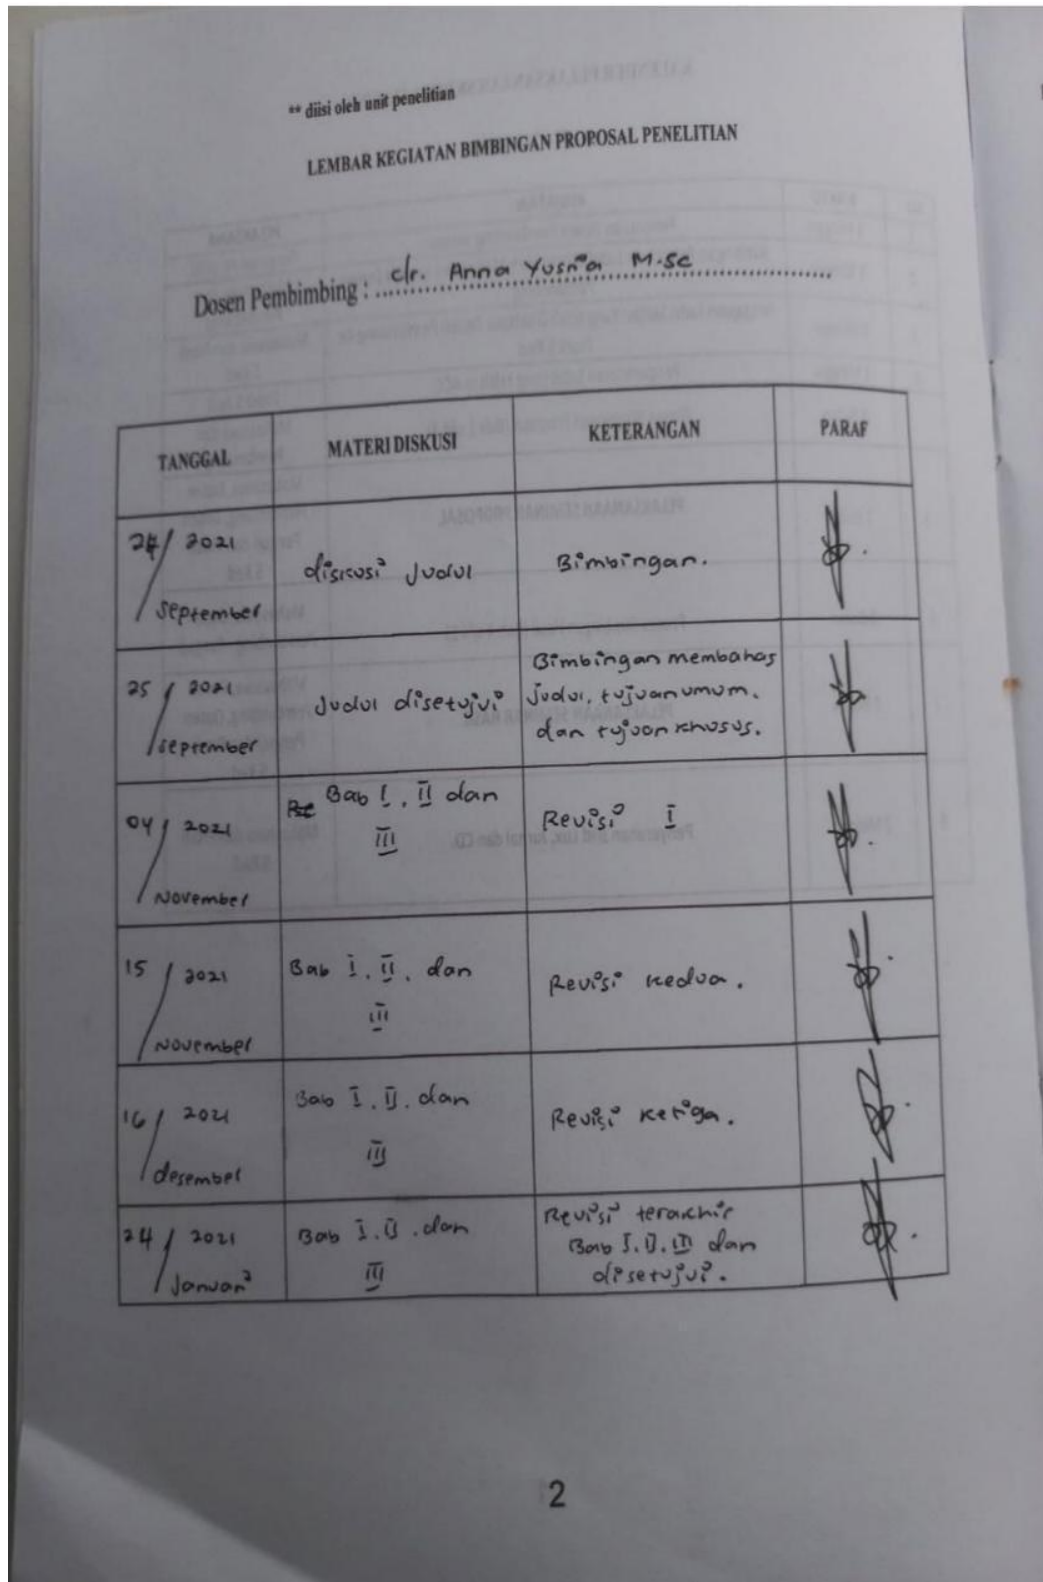 ** diisi oleh unit penelitian
LEMBAR KEGIATAN BIMBINGAN PROPOSAL PENELITIAN
Dosen Pembimbing : dr. Anna Yusria M.Sc
TANGGAL MATERI DISKUSI KETERANGAN PARAF
24 / 2021 September diskusi Judul Bimbingan.
25 / 2021 September Judul disetujui Bimbingan membahas
judul, tujuan umum.
dan tujuan khusus.
04 / 2021 November Bab I, II dan
III Revisi I
15 / 2021 November Bab I, II, dan
III Revisi kedua.
16 / 2021 desember Bab I, II, dan
III Revisi ketiga.
24 / 2021 Januari Bab I, II, dan
III Revisi terakhir
Bab I, II, III dan
disetujui.
2